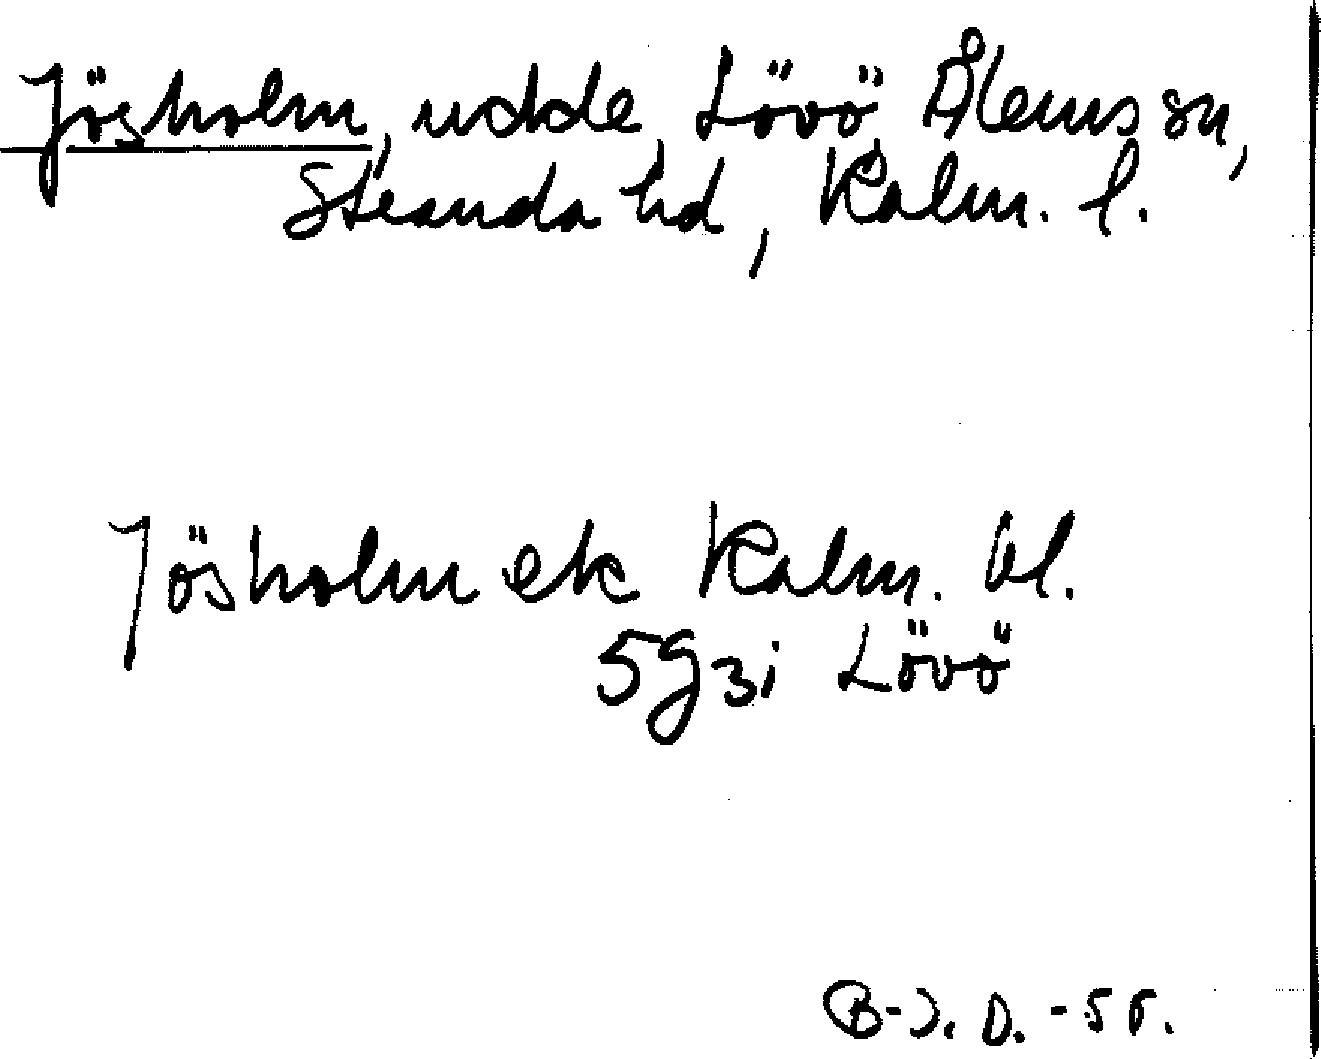 Jösholm, udde, Lövö, Ålems sn,
Stranda hd, Kalm. l.
Jösholm ek Kalm. bl.
5g3i Lövö
B-J. D. -55.